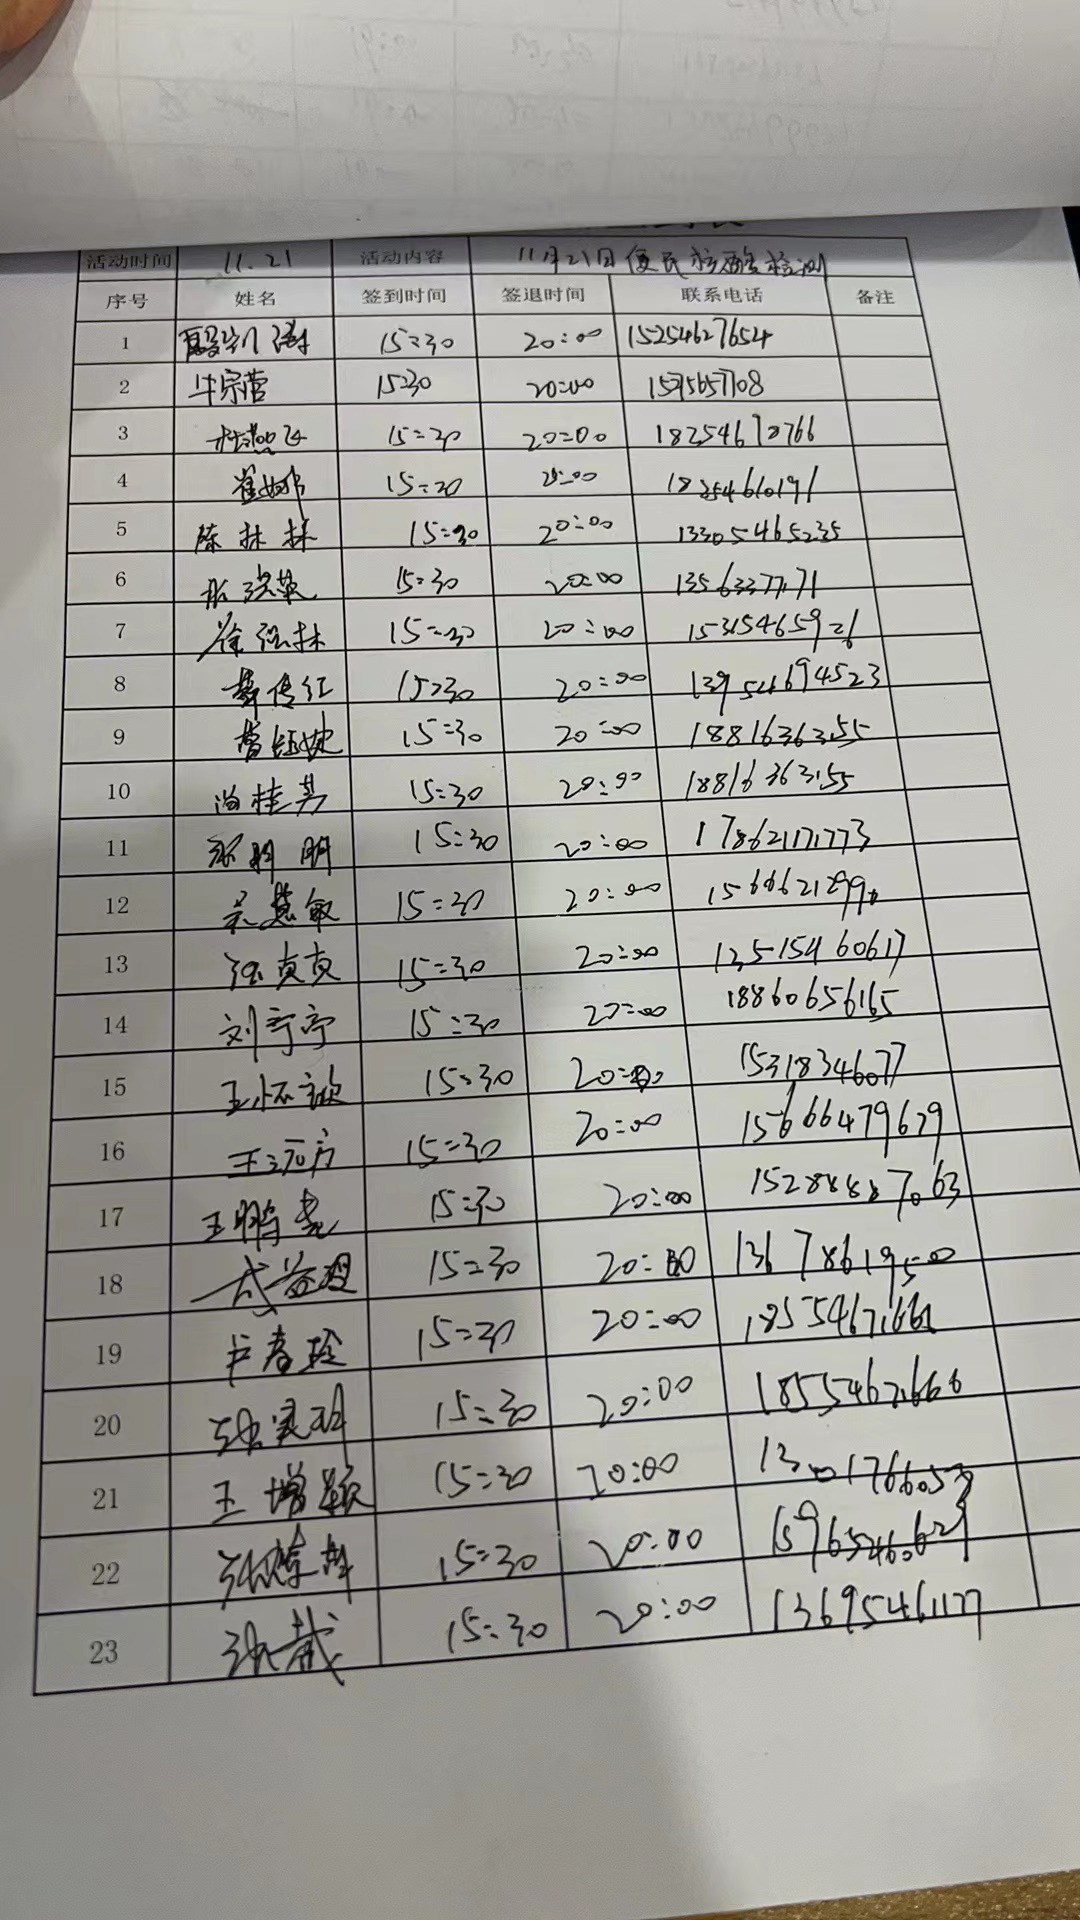 活动时间 11.21 活动内容 11月21日便民核酸检测
序号 姓名 签到时间 签退时间 联系电话 备注
1 15:30 20:00 15254627654
2 牛宗营 15:30 20:00 1595657708
3 15:30 20:00 18254678766
4 崔娜 15:30 20:00 18254610191
5 陈林林 15:30 20:00 13305465235
6 15:30 20:00 13563377171
7 徐强林 15:30 20:00 15315465926
8 薛传红 15:30 20:00 139546694523
9 15:30 20:00 18816363155
10 尚桂芳 15:30 20:00 18816363155
11 15:30 20:00 17862171773
12 宋慧敏 15:30 20:00 15666212990
13 张贞贞 15:30 20:00 13515460617
14 刘宁宁 15:30 20:00 18860656165
15 王怀诚 15:30 20:00 15318346077
16 王元方 15:30 20:00 15666479679
17 王鹏尧 15:30 20:00 15288887063
18 武益理 15:30 20:00 13678619500
19 卢春玲 15:30 20:00 18554671666
20 张灵玥 15:30 20:00 18554671666
21 王增颖 15:30 20:00 13017666053
22 15:30 20:00 15965460629
23 张戴 15:30 20:00 13695461177